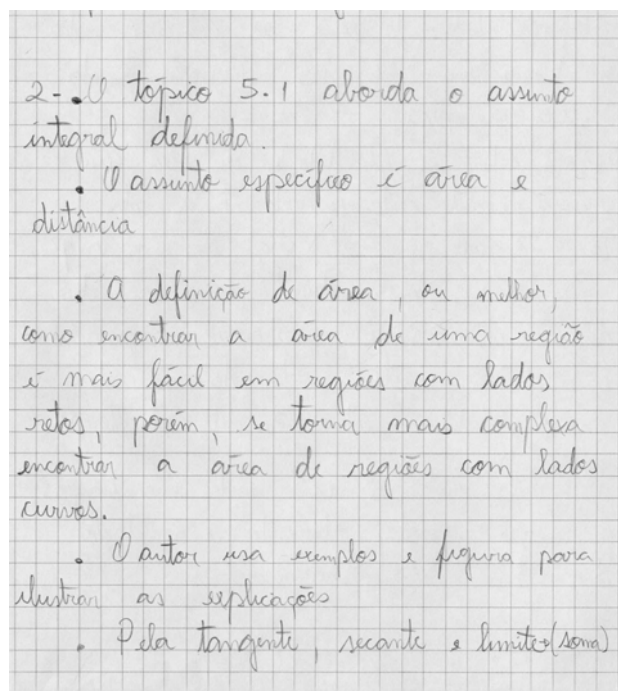 2- • O tópico 5.1 aborda o assunto
integral definida.
• O assunto específico é área e
distância
• A definição de área, ou melhor,
como encontrar a área de uma região
é mais fácil em regiões com lados
retos, porém, se torna mais complexa
encontrar a área de regiões com lados
curvos.
• O autor usa exemplos e figura para
ilustrar as explicações
• Pela tangente, secante e limite (soma)